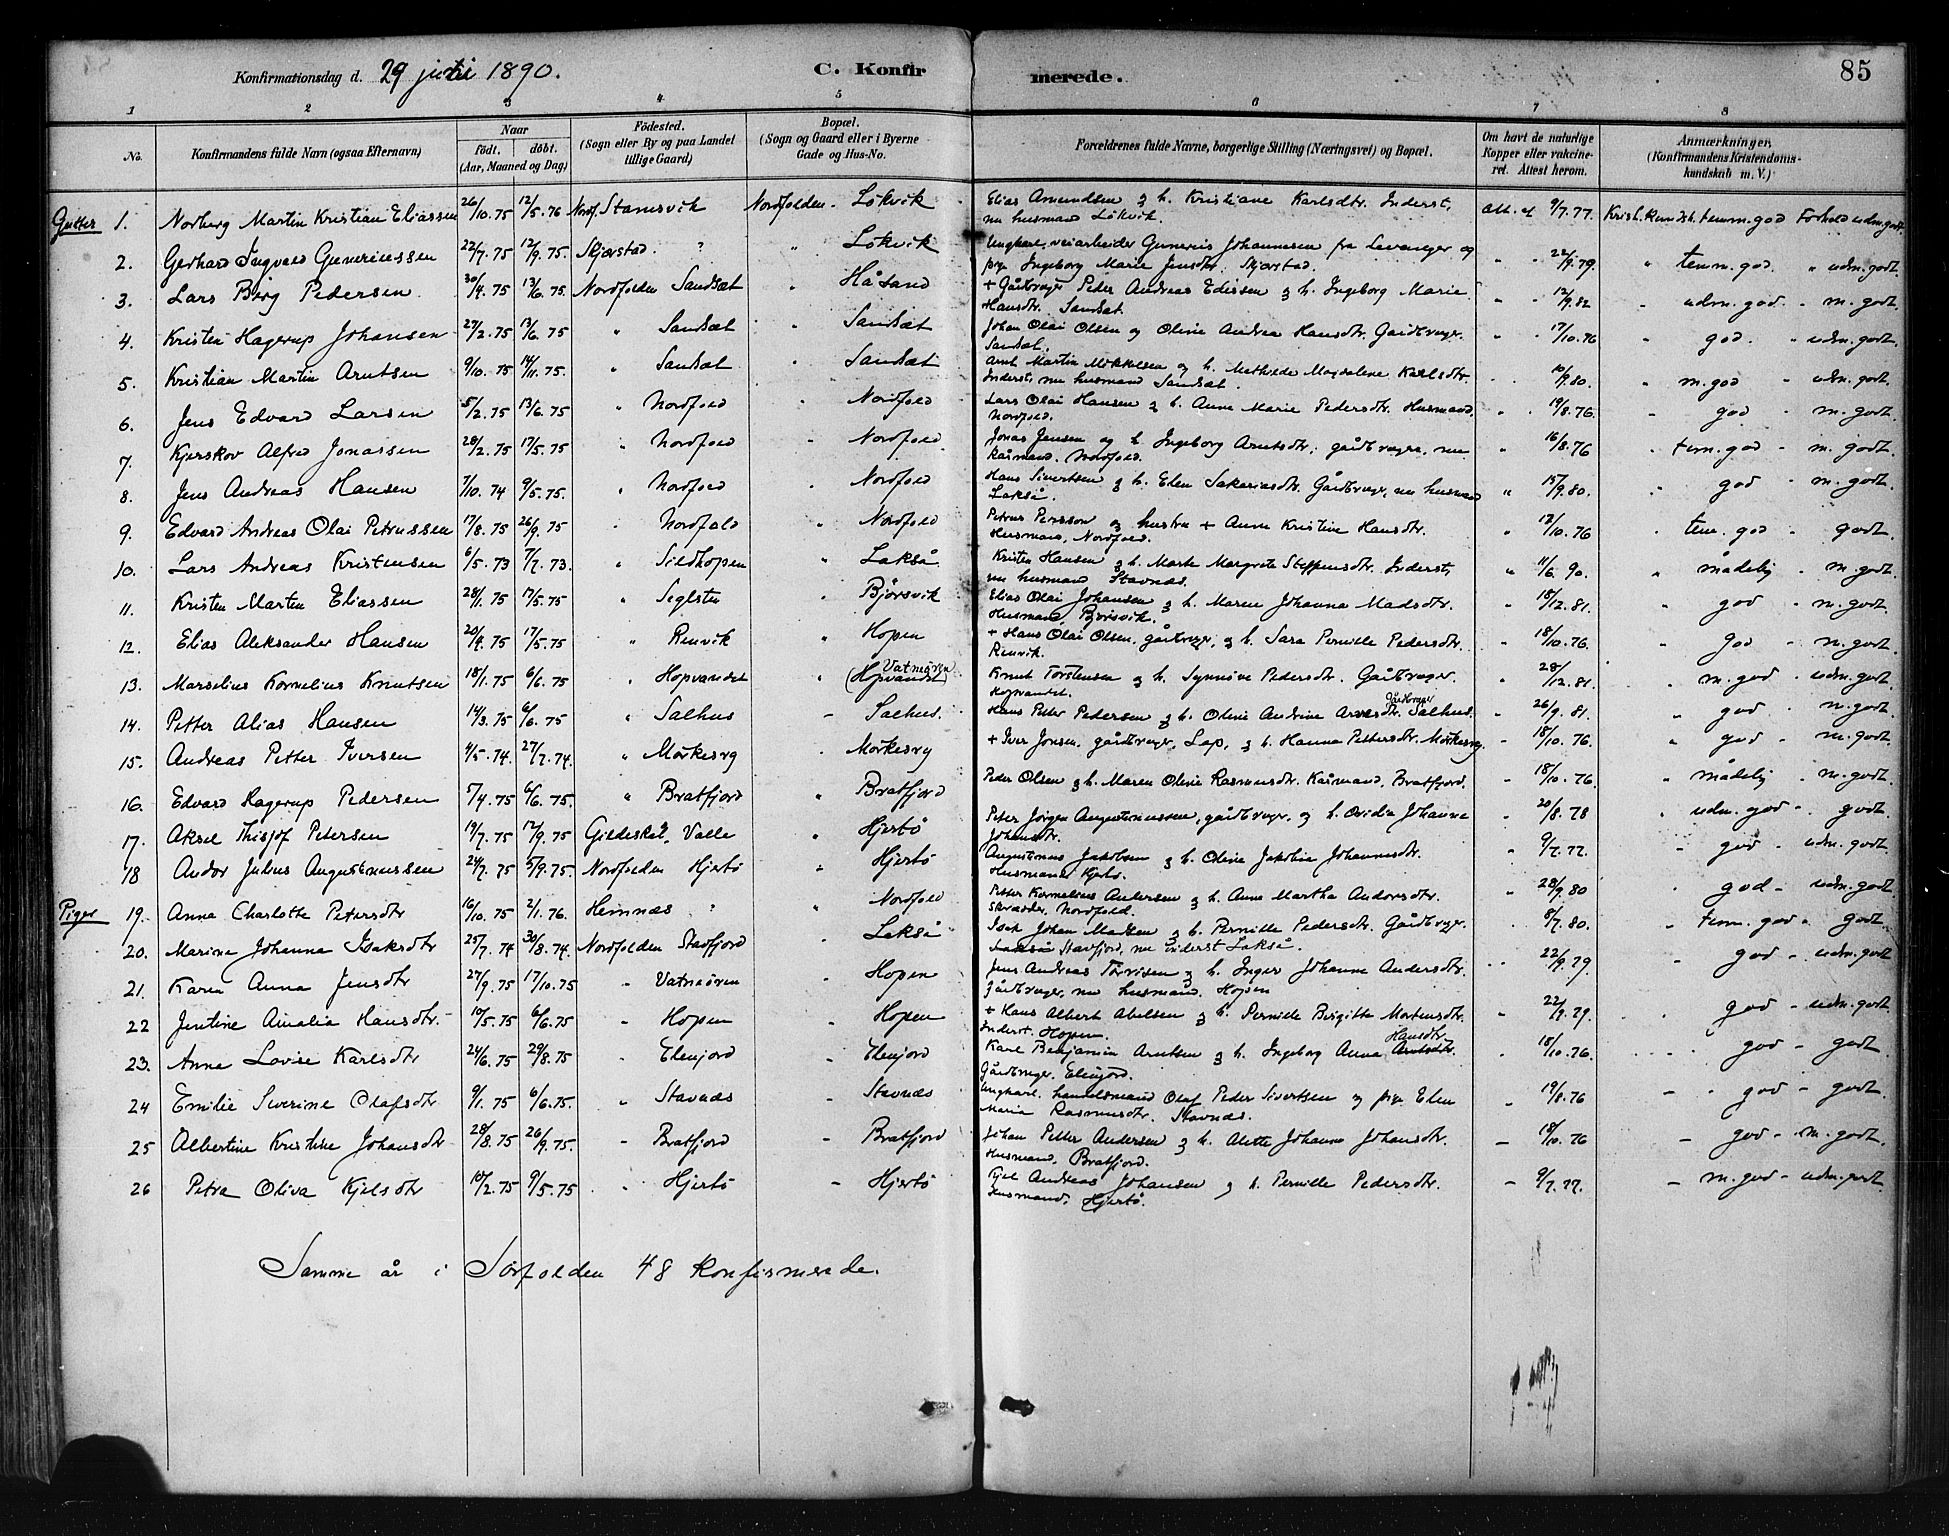 Konfirmationsdag d. 29 juni 1890. C. Konfirmerede. 85
1 2 3 4 5 6 7 8
No. Konfirmandens fulde Navn (ogsaa Efternavn) Naar födt. döbt. (Aar, Maaned og Dag) Födested. (Sogn eller By og paa Landet tillige Gaard) Bopæl. (Sogn og Gaard eller i Byerne Gade og Hus-No. Forældrenes fulde Navne, borgerlige Stilling (Næringsvei) og Bopæl. Om havt de naturlige Kopper eller vakcineret. Attest herom. Anmærkninger, (Konfirmandens Kristendomskundskab m. V.)
Gutter 1. Norberg Martin Kristian Eliassen 26/10.75 12/5.76 Nordf. Stamsvik Nordfolden Løkvik Elias Amundsen & h. Kristiane Karlsdtr. Inderst, nu husmand Løkvik. Att. af 9/7.77. Krist. kundsk. temm. god Forhold udm. godt.
2. Gerhard Ingvald Guneriussen 22/7.75 12/9.75. Skjerstad ? " Løkvik Ungkarl, veiarbeider Gunerius Johannesen fra Levanger og pige Ingeborg Marie Jensdtr. Skjerstad. " 22/9.79. " temm. god. " udm. godt.
3. Lars Berg Pedersen 30/4.75 13/6.75. Nordfolden Sandsæt " Håsand + Gårdbruger Peder Andreas Edissen & h. Ingeborg Marie Hansdtr. Sandsæt. " 12/9.82 " udm. god. m. godt.
4. Kristen Hagerup Johansen 27/2.75 13/6.75 " Sandsæt " Sandsæt Johan Olai Olsen og Oline Andrea Hansdtr. Gårdbruger. Sandsæt. " 17/10.76 " god. " udm. godt.
5. Kristian Martin Arntsen 9/10.75 14/11.75. " Sandsæt " Sandsæt Arnt Martin Mikkelsen og h. Mathilde Magdalene Karlsdtr. Inderst, nu husmand Sandsæt. 10/9.80. " m. god " udm. godt.
6. Jens Edvard Larsen 5/2.75 13/6.75 " Nordfold " Nordfold Lars Olai Hansen & h. Anne Marie Pedersdtr. Husmand, Nordfold. " 19/8.76. " god " m. godt.
7. Kjerskov Alfred Jonassen 28/2.75 17/5.75 " Nordfold " Nordfold. Jonas Jensen og h. Ingeborg Arntsdtr; gårdbruger, nu Kårmand. Nordfold. " 16/8.76 " tem. god " m. godt.
8. Jens Andreas Hansen 7/10.74 9/5.75. " Nordfold " Nordfold Hans Sivertsen & h. Elen Sakariasdtr. Gårdbruger, nu husmand Lakså. " 15/9.80. " god " m. godt.
9. Edvard Andreas Olai Petrussen 17/8.75 26/9.75 " Nordfold " Nordfold Petrus Persson og hustru + Anne Kristine Hansdtr. Husmand, Nordfold. " 12/10.76 " tem. god " godt.
10. Lars Andreas Kristensen 6/5.73 7/7.73. " Sildhopen " Lakså. Kristen Hansen & h. Marte Margrete Steffensdtr. Inderst, nu husmand Stavnæs. " 11/6.90. " mådelig " m. godt.
11. Kristen Martin Eliassen 28/1.75 17/5.75 " Seglsten " Bjørsvik Elias Olai Johansen & h. Maren Johanna Madsdtr. Husmand Bjørsvik. " 15/12.81. " god " m. godt.
12. Elias Aleksander Hansen 20/4.75 17/5.75 " Renvik " Hopen + Hans Olai Olsen, gårdbruger, & h. Sara Pernille Pedersdtr. Renvik. " 18/10.76. " god " m. godt.
13. Marselius Kornelius Knutsen 18/1.75 6/6.75 " Hopvandet " Vatneøren (Hopvandet) Knut Torstensen & h. Synnøve Pedersdtr. Gårdbruger. Hopvandet. 28/12.81. " m. god " udm. godt.
14. Petter Alias Hansen 14/3.75 6/6.75 " Salhus " Salhus. Hans Petter Pedersen & h. Oline Andrine Arnesdtr. Gårdbruger Salhus. " 26/9.81. " god " m. godt.
15. Andreas Petter Iversen 4/5.74. 27/7.74. " Mørkesvg " Mørkesvg + Iver Jonsen, gårdbruger, Lap, & h. Hanna Pettersdtr. Mørkesvg. " 18/10.76. " god " m. godt.
16. Edvard Hagerup Pedersen 5/4.75 6/6.75. " Bratfjord " Bratfjord Peder Olsen & h. Maren Oline Rasmusdtr. Kårmand, Bratfjord. " 18/10.76 " mådelig " m. godt.
17. Aksel Thisjof Petersen 19/7.75 12/9.75 Gildeskål, Valle " Hjertø Peter Jørgen Augustinussen, gårdbruger, & h. Ovidia Johanna Johansdtr. " 20/8.78 " udm. god " godt.
18 Andor Julius Augustinussen 24/7.75 5/9.75. Nordfolden Hjertø " Hjertø Augustinus Jakobsen & h. Oline Jakobia Johannesdtr. Husmand Hjertø. " 9/7.77. " god " udm. godt.
Piger 19. Anna Charlotte Petersdtr 16/10.75 2/1.76. Hemnæs ? " Nordfold Petter Kornelius Andersen & h. Anne Martha Andorsdtr. Skrædder, Nordfold. " 28/9.80 god " udm. godt
20. Marine Johanna Isaksdtr 25/7.74 30/8.74. Nordfolden Stavfjord " Lakså Isak Johan Matsen & h. Pernille Pedersdtr. Gårdbruger. Stavfjord, nu inderst Lakså. 8/7.80. " tem. god " godt.
21. Karen Anna Jensdtr 27/9.75 17/10.75 " Vatneøren " Hopen Jens Andreas Torrisen & h. Inger Johanne Andersdtr. gårdbruger, nu husmand. Hopen " 22/9.79 " god " udm. godt
22 Jentine Amalia Hansdtr. 10/5.75 6/6.75 " Hopen " Hopen + Hans Albert Abelsen & h. Pernille Birgitte Mortensdtr. Inderst. Hopen. " 22/9.79. god " udm. godt
23. Anne Lovise Karlsdtr 24/6.75 29/8.75 " Elenjord " Elenjord Karl Benjamin Arntsen & h. Ingeborg Anna Hansdtr. Gårdbruger, Elenjord. 18/10.76. god " godt
24 Emilie Severine Olafsdtr 9/1.75 6/6.75. " Stavnæs " Stavnæs Ungkarl, handelsmand Olaf Peder Sivertsen og pige Elen Maria Rasmusdtr. Stavnæs. " 19/8.76 " god " godt
25 Albertine Kristine Johansdtr 28/8.75 26/9.75. " Bratfjord " Bratfjord Johan Petter Andersen & h. Alette Johanna Johansdtr. Husmand, Bratfjord. " 18/10.76 " god " m. godt.
26 Petra Oliva Kjelsdtr 10/2.75 9/5.75 " Hjertø " Hjertø Kjel Andreas Johansen & h. Pernille Pedersdtr. Husmand, Hjertø. " 9/7.77. " m. god " udm. godt.
Samme år i Sørfolden 48 konfirmerede.